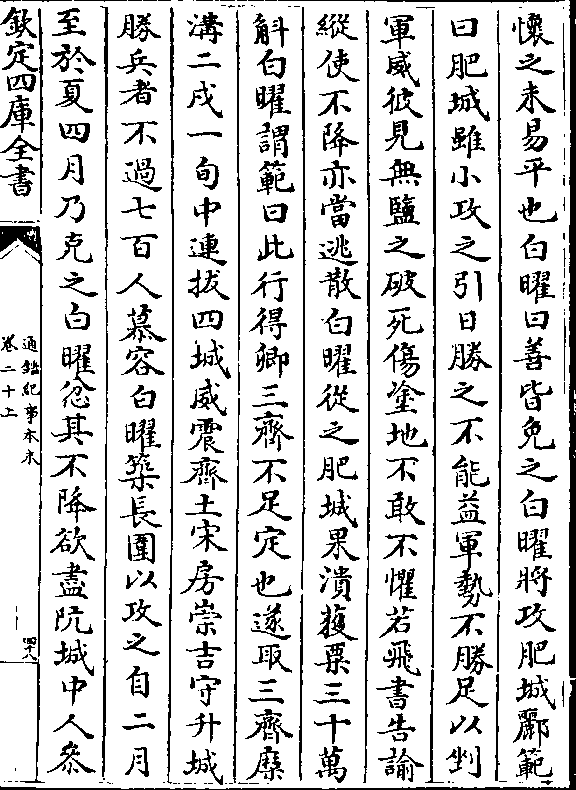 懷之未易平也白曜曰善皆免之白曜將攻肥城酈範
曰肥城雖小攻之引日勝之不能益軍勢不勝足以剉
軍威彼見無鹽之破死傷塗地不敢不懼若飛書告諭
縱使不降亦當逃散白曜從之肥城果潰獲粟三十萬
斛白曜謂範曰此行得卿三齊不足定也遂取三齊糜
溝二戍一旬中連拔四城威震齊土宋房崇吉守升城
勝兵者不過七百人慕容白曜築長圍以攻之自二月
至於夏四月乃克之白曜忿其不降欲盡阬城中人叅
欽定四庫全書
通鑑紀事本末
卷二十上
四八